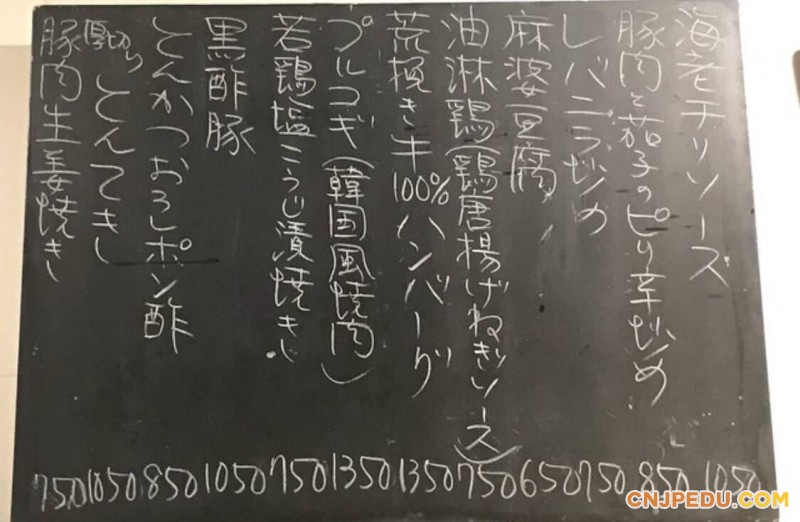 海老チリソース 1050
豚肉と茄子のピリ辛炒め 850
レバニラ炒め 750
麻婆豆腐 650
油淋鶏(鶏唐揚げねぎソース) 750
荒挽き牛100%ハンバーグ 1350
プルコギ(韓国風焼肉) 1350
若鶏塩こうじ漬焼き 750
黒酢豚 1050
とんかつおろしポン酢 850
厚切りとんてき 1050
豚肉生姜焼き 750
CNJPEDU.COM